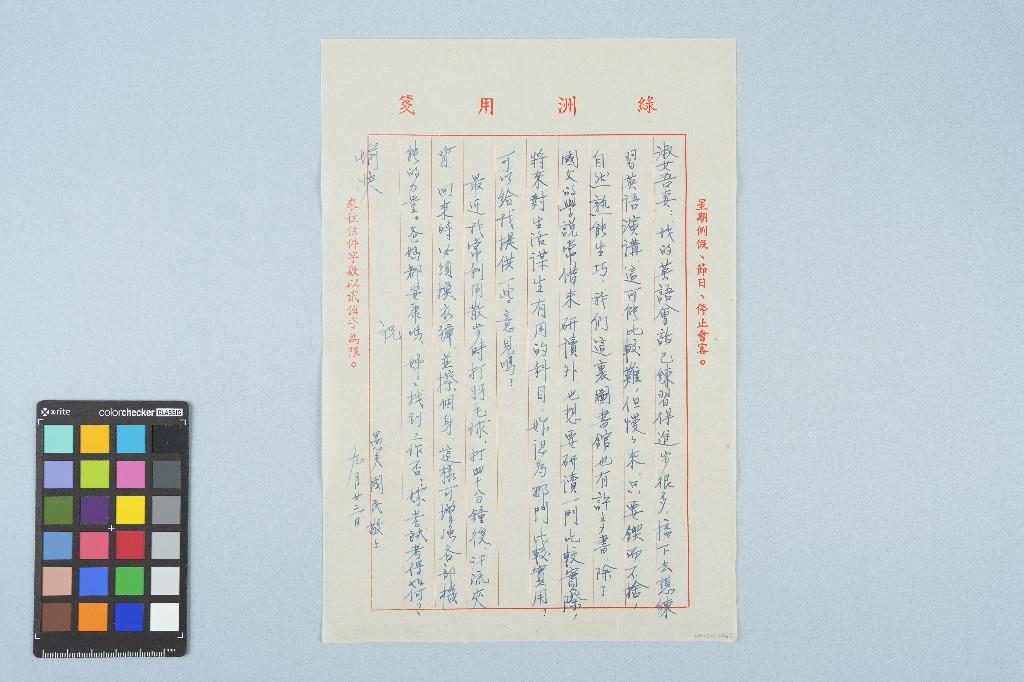 綠洲用箋
星期例假、節日、停止會客。
淑女吾妻：我的英語會話已練習得進步很多，接下去想練
習英語演講，這可能比較難，但慢慢來，只要鍥而不捨，
自然熟能生巧，我們這裏圖書館也有許多書，除了
國父的學說常借來研讀外，也想要研讀一門比較實際，
將來對生活謀生有用的科目，妳認為那門比較實用，
可以給我提供一些意見嗎？
最近我常利用散步時打羽毛球，打四十分鐘後，汗流夾
背，回來時必須換衣褲，並擦個身，這樣可增強各部機
能的力量。爸媽都安康嗎，妳找到工作否，考試考得如何？
祝
愉快
愚夫國民敬上
九月廿三日
來往信件字數以貳佰字為限。
x-rite
colorchecker CLASSIC